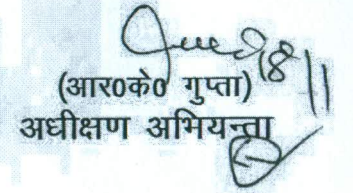 (आर0के0 गुप्ता)
अधीक्षण अभियन्ता